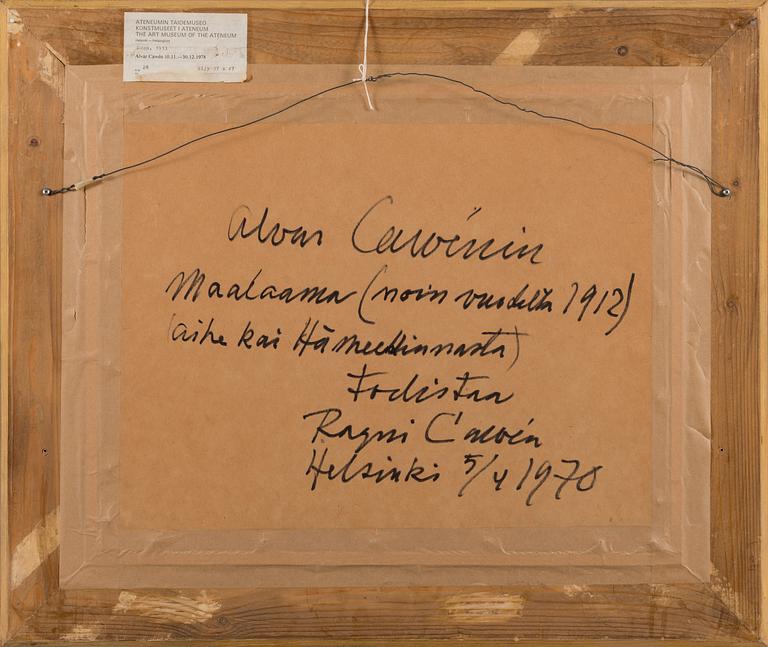 ATENEUMIN TAIDEMUSEO
KONSTMUSEET I ATENEUM
THE ART MUSEUM OF THE ATENEUM
Helsinki — Helsingfors
1913
Alvar Cawén 10.11.—30.12.1978
28
Alvar Cawénin
Maalaama (noin vuodelta 1912)
(aihe kai Hämeenlinnasta)
todistaa
Ragni Cawén
Helsinki 5/4 1970